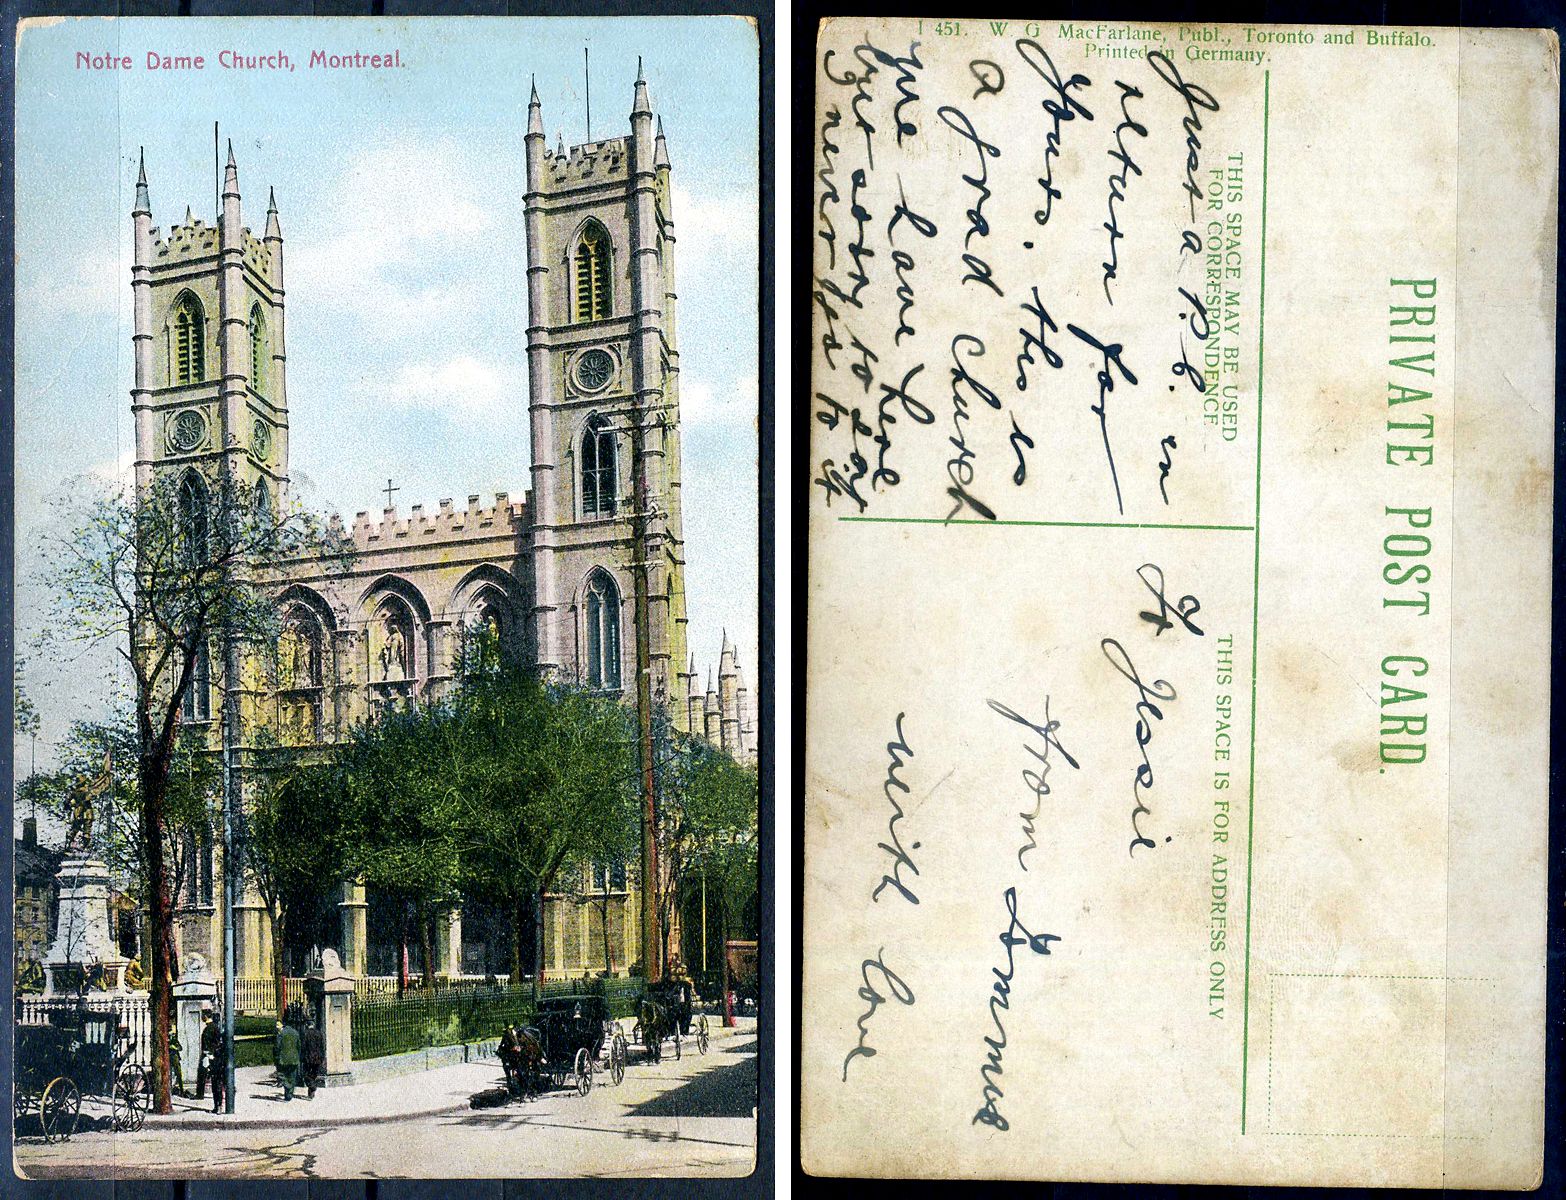 Notre Dame Church, Montreal.
I 451. W. G. MacFarlane, Publ., Toronto and Buffalo.
Printed in Germany.
PRIVATE POST CARD.
THIS SPACE MAY BE USED
FOR CORRESPONDENCE
THIS SPACE IS FOR ADDRESS ONLY
Just a P.C. in
return for
yours. this is
a grad church
we have here
but sorry to say
I never go to it
To Jessie
From Emma
with love